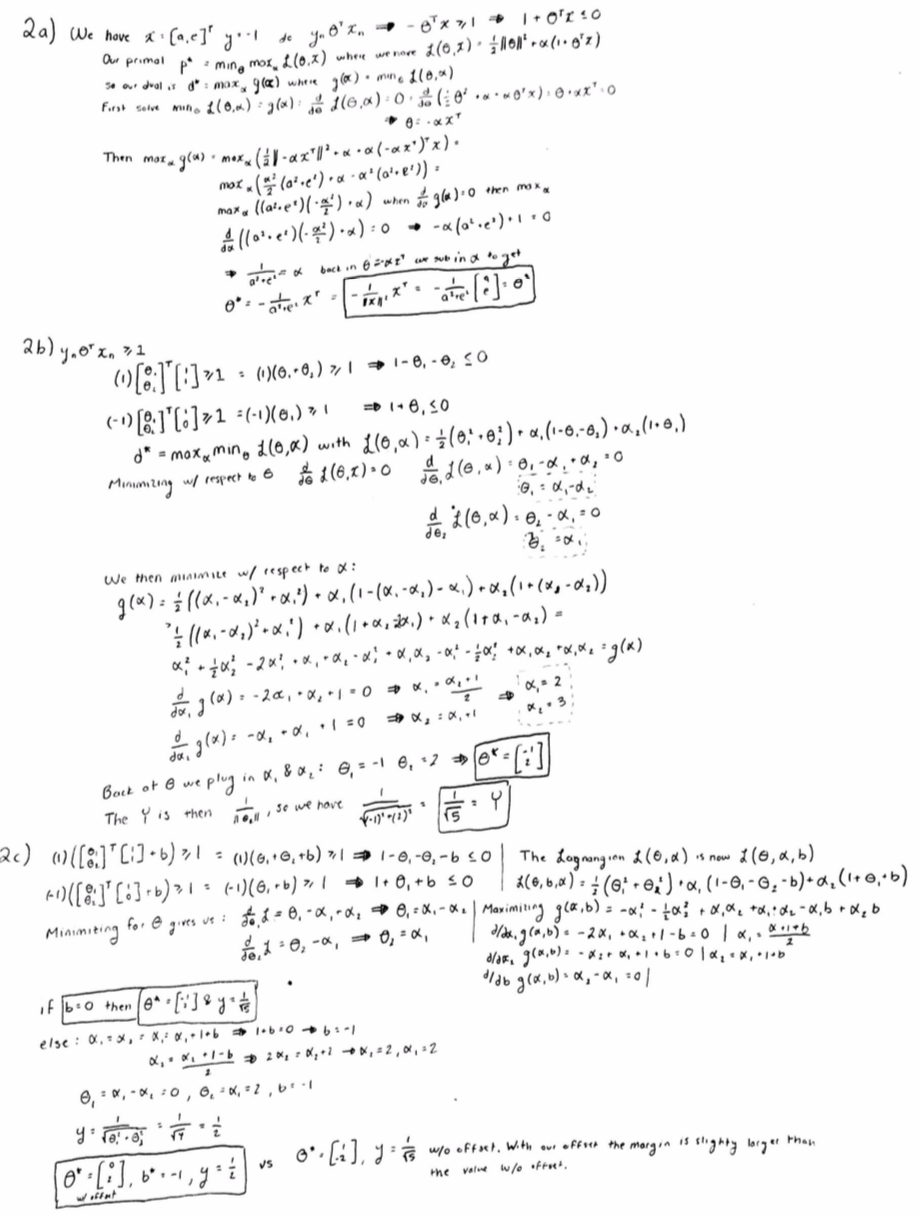 2a) We have x = [a,e]ᵀ y = -1 so yₙθᵀxₙ ⇒ -θᵀx ≥ 1 ⇒ 1 + θᵀx ≤ 0
Our primal p* = min_θ max_α L(θ,x) where we have L(θ,x) = ½||θ||² + α(1+θᵀx)
so our dual is d* = max_α g(α) where g(α) = min_θ L(θ,α)
First solve min_θ L(θ,α) = g(α): d/dθ L(θ,α) = 0 = d/dθ (½θ² + α + αθᵀx) = θ + αxᵀ = 0
⇒ θ = -αxᵀ
Then max_α g(α) = max_α (½||-αxᵀ||² + α + α(-αxᵀ)ᵀx) =
max_α (α²/2 (a²+e²) + α - α²(a²+e²)) =
max_α ((a²+e²)(-α²/2) + α) when d/dα g(α) = 0 then max_α
d/dα ((a²+e²)(-α²/2) + α) = 0 ⇒ -α(a²+e²) + 1 = 0
⇒ 1/(a²+e²) = α back in θ = -αxᵀ we sub in α to get
θ* = -1/(a²+e²) xᵀ = -1/||x||² xᵀ = -1/(a²+e²) [a e] = θ*
2b) yₙθᵀxₙ ≥ 1
(1)[θ₁ θ₂]ᵀ[1 1] ≥ 1 = (1)(θ₁+θ₂) ≥ 1 ⇒ 1-θ₁-θ₂ ≤ 0
(-1)[θ₁ θ₂]ᵀ[1 0] ≥ 1 = (-1)(θ₁) ≥ 1 ⇒ 1+θ₁ ≤ 0
d* = max_α min_θ L(θ,α) with L(θ,α) = ½(θ₁²+θ₂²) + α₁(1-θ₁-θ₂) + α₂(1+θ₁)
Minimizing w/ respect to θ d/dθ L(θ,x) = 0 d/dθ₁ L(θ,α) = θ₁ - α₁ + α₂ = 0
θ₁ = α₁-α₂
d/dθ₂ L(θ,α) = θ₂ - α₁ = 0
θ₂ = α₁
We then minimize w/ respect to α:
g(α) = ½((α₁-α₂)² + α₁²) + α₁(1-(α₁-α₂)-α₁) + α₂(1+(α₁-α₂))
½((α₁-α₂)²+α₁²) + α₁(1+α₂-2α₁) + α₂(1+α₁-α₂) =
α₁² + ½α₂² - 2α₁² + α₁ + α₂ - α₁² + α₁α₂ - α₁² - ½α₂² + α₁α₂ + α₁α₂ = g(α)
d/dα₁ g(α) = -2α₁ + α₂ + 1 = 0 ⇒ α₁ = (α₂+1)/2 ⇒ α₁ = 2
α₂ = 3
d/dα₁ g(α) = -α₂ + α₁ + 1 = 0 ⇒ α₂ = α₁+1
Back at θ we plug in α₁ & α₂: θ₁ = -1 θ₂ = 2 ⇒ θ* = [-1 2]
The γ is then 1/||θ₂||, so we have 1/√((-1)²+(2)²) = 1/√5 = γ
2c) (1)([θ₁ θ₂]ᵀ[1 1] + b) ≥ 1 = (1)(θ₁+θ₂+b) ≥ 1 ⇒ 1-θ₁-θ₂-b ≤ 0
(-1)([θ₁ θ₂]ᵀ[1 0] + b) ≥ 1 = (-1)(θ₁+b) ≥ 1 ⇒ 1+θ₁+b ≤ 0
Minimiting for θ gives us: d/dθ₁ L = θ₁ - α₁ + α₂ ⇒ θ₁ = α₁-α₂
d/dθ₂ L = θ₂ - α₁ ⇒ θ₂ = α₁
The Lagrangian L(θ,α) is now L(θ,α,b)
L(θ,b,α) = ½(θ₁²+θ₂²) + α₁(1-θ₁-θ₂-b) + α₂(1+θ₁+b)
Maximiting g(α,b) = -α₁² - ½α₂² + α₁α₂ + α₁ + α₂ - α₁b + α₂b
d/dα₁ g(α,b) = -2α₁ + α₂ + 1 - b = 0 | α₁ = (α+1+b)/2
d/dα₂ g(α,b) = -α₂ + α₁ + 1 + b = 0 | α₂ = α₁+1+b
d/db g(α,b) = α₂ - α₁ = 0 |
if b=0 then θ* = [-1 2] & γ = 1/√5
else: α₁ = α₂ = α₁ = α₁+1+b ⇒ 1+b=0 → b=-1
α₁ = (α₁+1-b)/2 ⇒ 2α₂ = α₂+2 → α₁ = 2, α₁ = 2
θ₁ = α₁-α₂ = 0, θ₂ = α₁ = 2, b = -1
γ = 1/√(θ₁²+θ₂²) = 1/√4 = 1/2
θ* = [0 2], b* = -1, γ = 1/2 vs θ* = [1 -2], γ = 1/√5 w/o offset. With our offset the margin is slightly larger than
w/ offset
the value w/o offset.